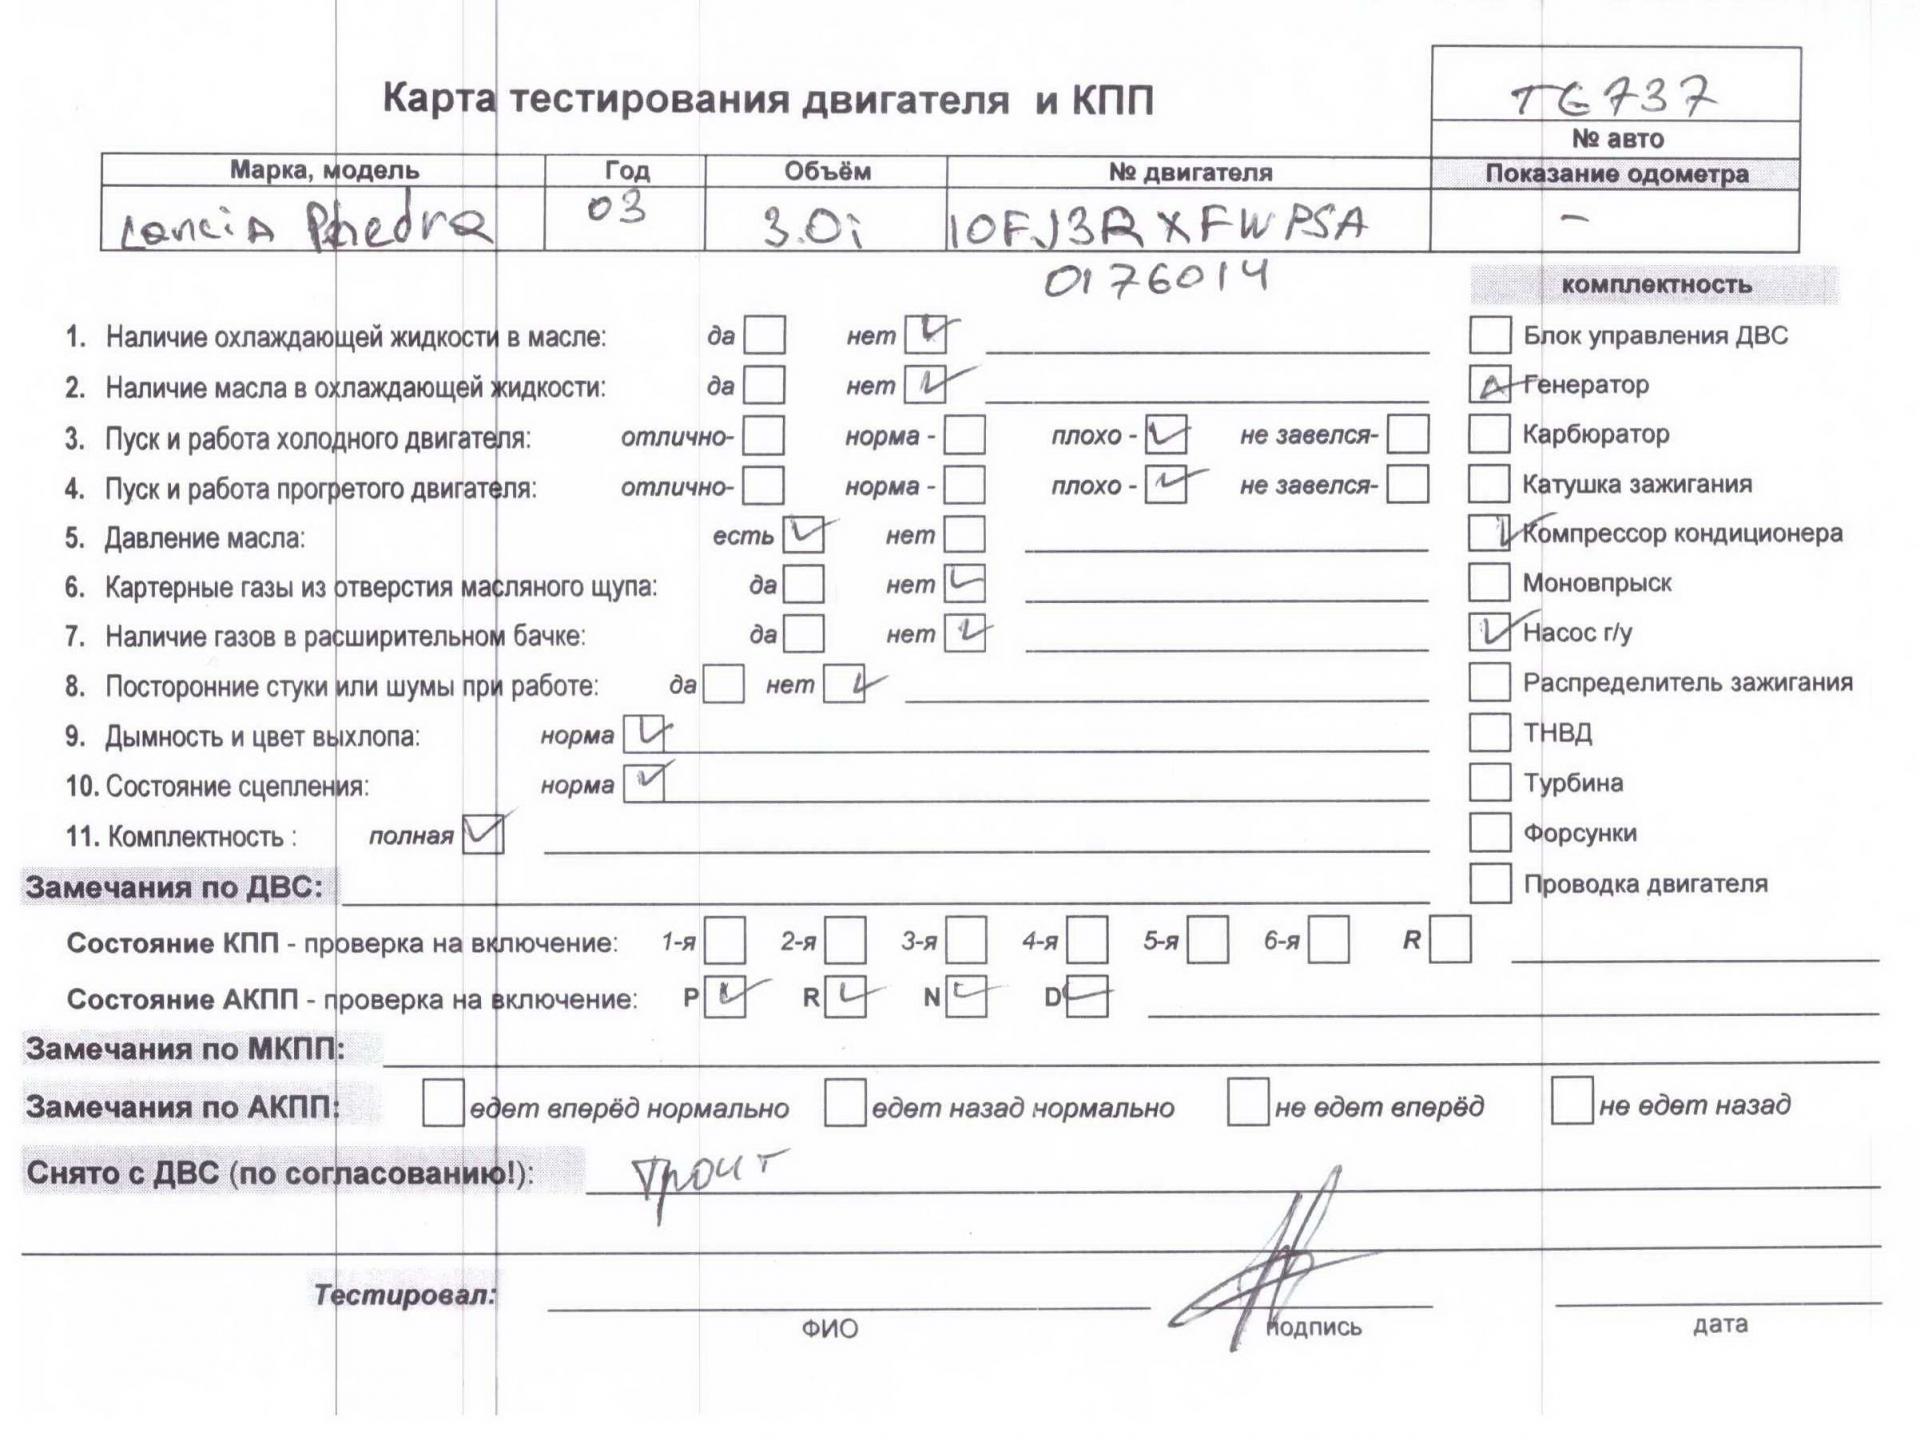 TG737
Карта тестирования двигателя и КПП
№ авто
Марка, модель Год Объём № двигателя Показание одометра
Lancia Phedra 03 3.0i 10FJ3RXFWPSA –
0176014
комплектность
1. Наличие охлаждающей жидкости в масле: да нет Блок управления ДВС
2. Наличие масла в охлаждающей жидкости: да нет Генератор
3. Пуск и работа холодного двигателя: отлично- норма - плохо - не завелся- Карбюратор
4. Пуск и работа прогретого двигателя: отлично- норма - плохо - не завелся- Катушка зажигания
5. Давление масла: есть нет Компрессор кондиционера
6. Картерные газы из отверстия масляного щупа: да нет Моновпрыск
7. Наличие газов в расширительном бачке: да нет Насос г/у
8. Посторонние стуки или шумы при работе: да нет Распределитель зажигания
9. Дымность и цвет выхлопа: норма ТНВД
10. Состояние сцепления: норма Турбина
11. Комплектность : полная Форсунки
Замечания по ДВС: Проводка двигателя
Состояние КПП - проверка на включение: 1-я 2-я 3-я 4-я 5-я 6-я R
Состояние АКПП - проверка на включение: P R N D
Замечания по МКПП:
Замечания по АКПП: едет вперёд нормально едет назад нормально не едет вперёд не едет назад
Снято с ДВС (по согласованию!): троит
Тестировал:
ФИО подпись дата